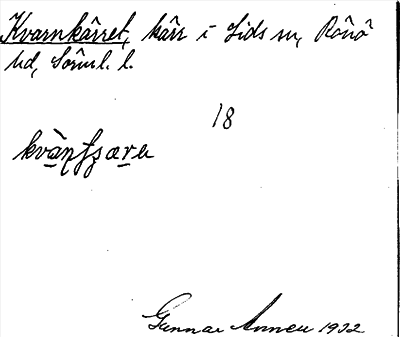 Kvarnkärret, kärr i Lids sn, Rönö
hd, Sörml. l.
18
Gunnar Annell 1932